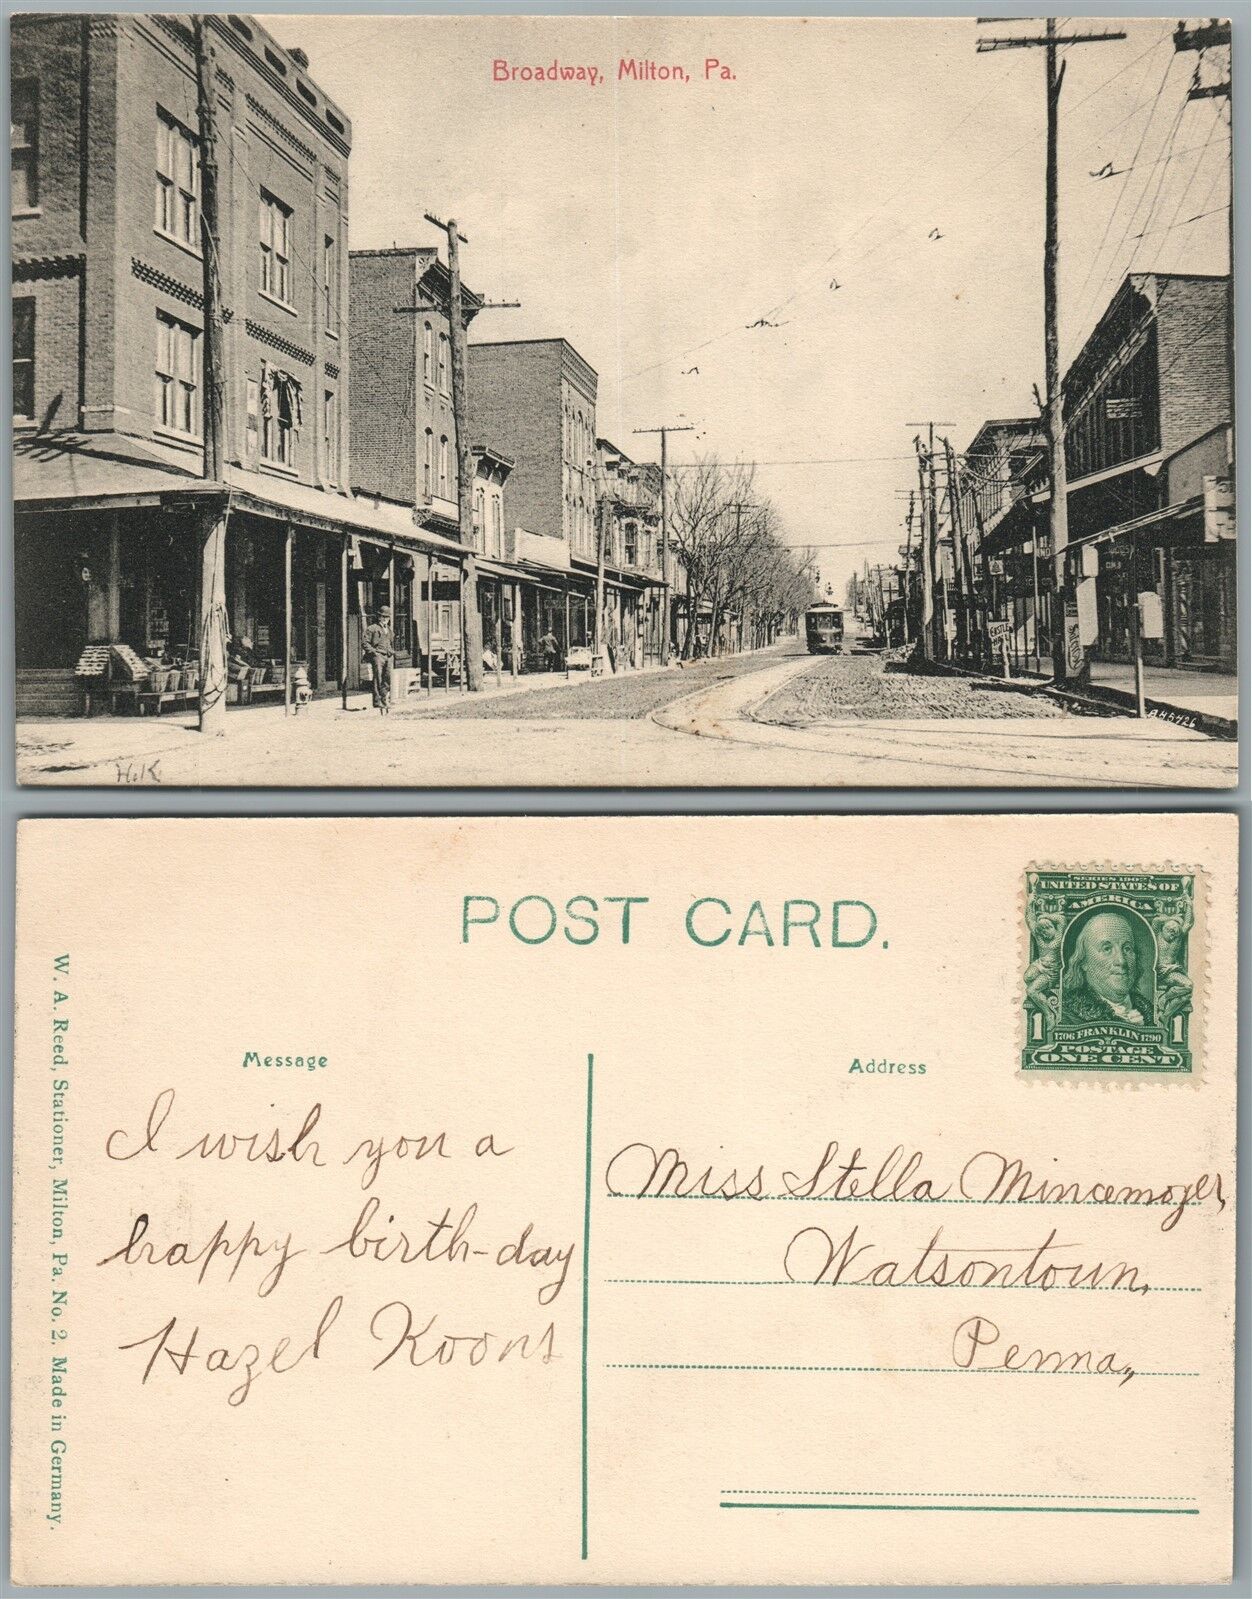 Broadway, Milton, Pa.
CASTLE
A H 5726
H.K
POST CARD.
SERIES 1902
UNITED STATES OF
AMERICA
1 1
1706 FRANKLIN 1790
POSTAGE
ONE CENT
W. A. Reed, Stationer, Milton, Pa. No. 2. Made in Germany.
Message
I wish you a
happy birth-day
Hazel Koons
Address
Miss Stella Mincemoyer,
Watsontown,
Penna,,